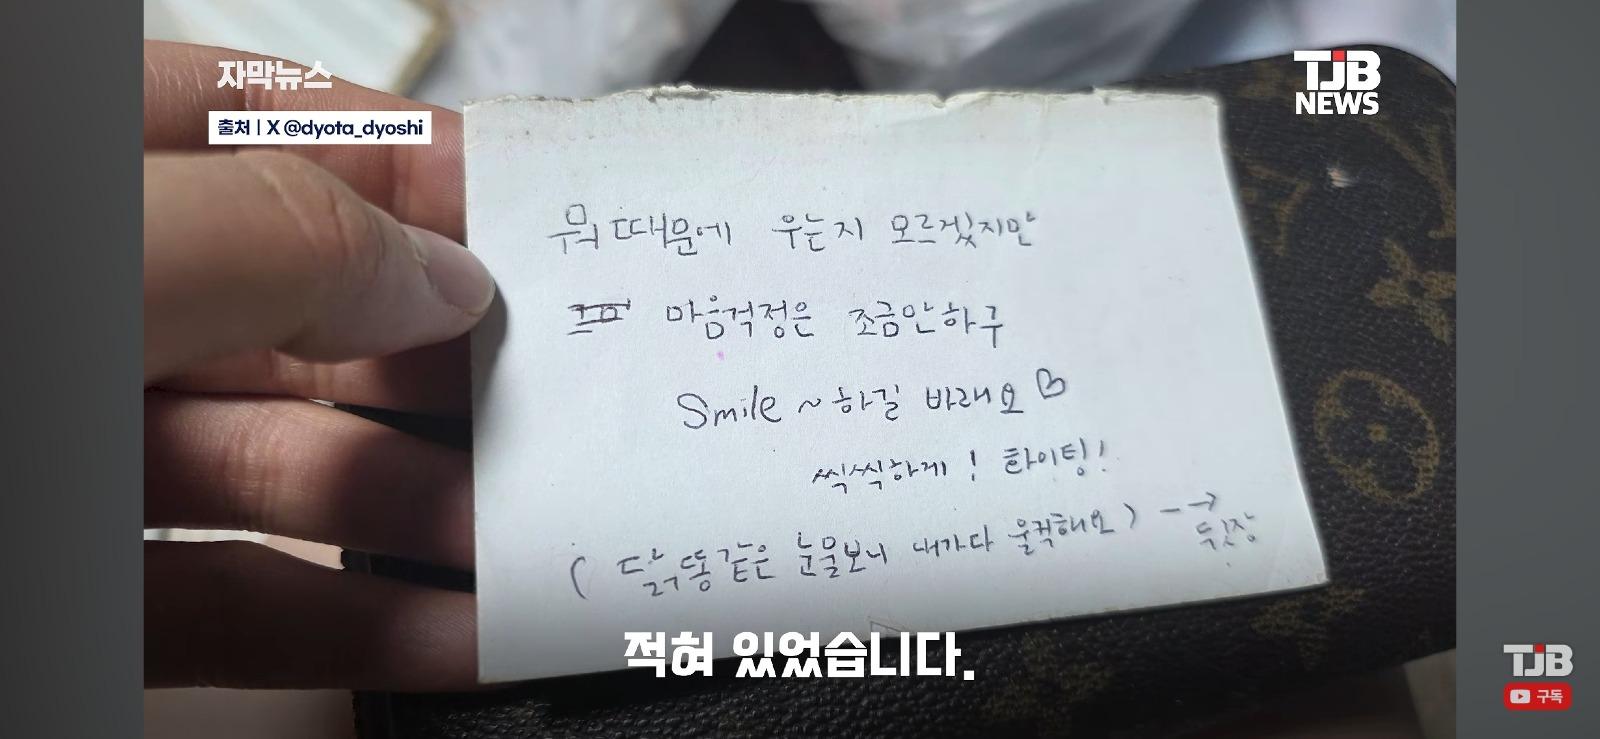 자막뉴스
출처 | X @dyota_dyoshi
TJB
NEWS
뭐때문에 우는지 모르겠지만
마음걱정은 조금만하구
Smile ~ 하길 바래요♡
씩씩하게! 화이팅!
( 닭똥같은 눈물보니 내가다 울컥해요 ) -→
뒷장
적혀 있었습니다.
TJB
구독